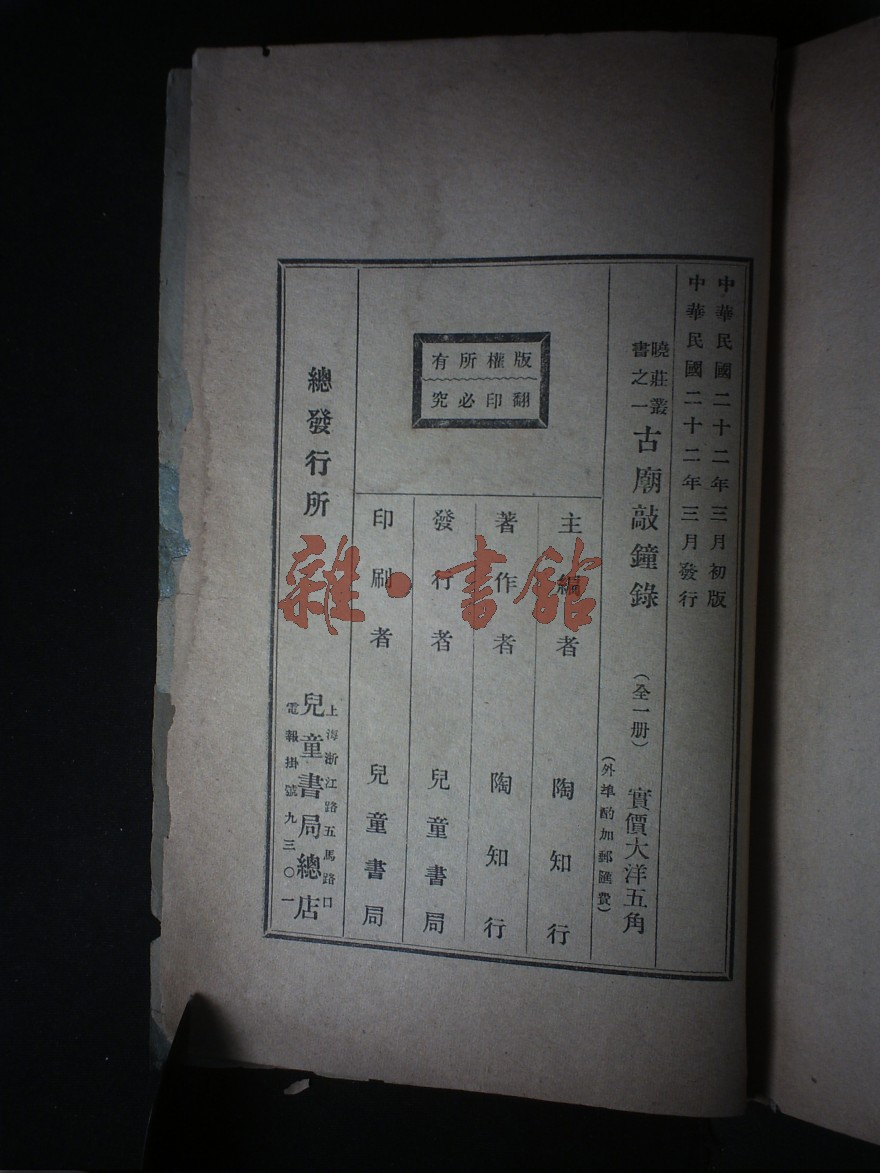 中華民國二十二年三月初版
中華民國二十二年三月發行
曉莊叢
書之一
古廟敲鐘錄
(全一册)
實價大洋五角
(外埠酌加郵匯費)
版權所有
翻印必究
主編者 陶知行
著作者 陶知行
發行者 兒童書局
印刷者 兒童書局
總發行所
上海浙江路五馬路口
兒童書局總店
電報掛號九三〇一
雜·書館